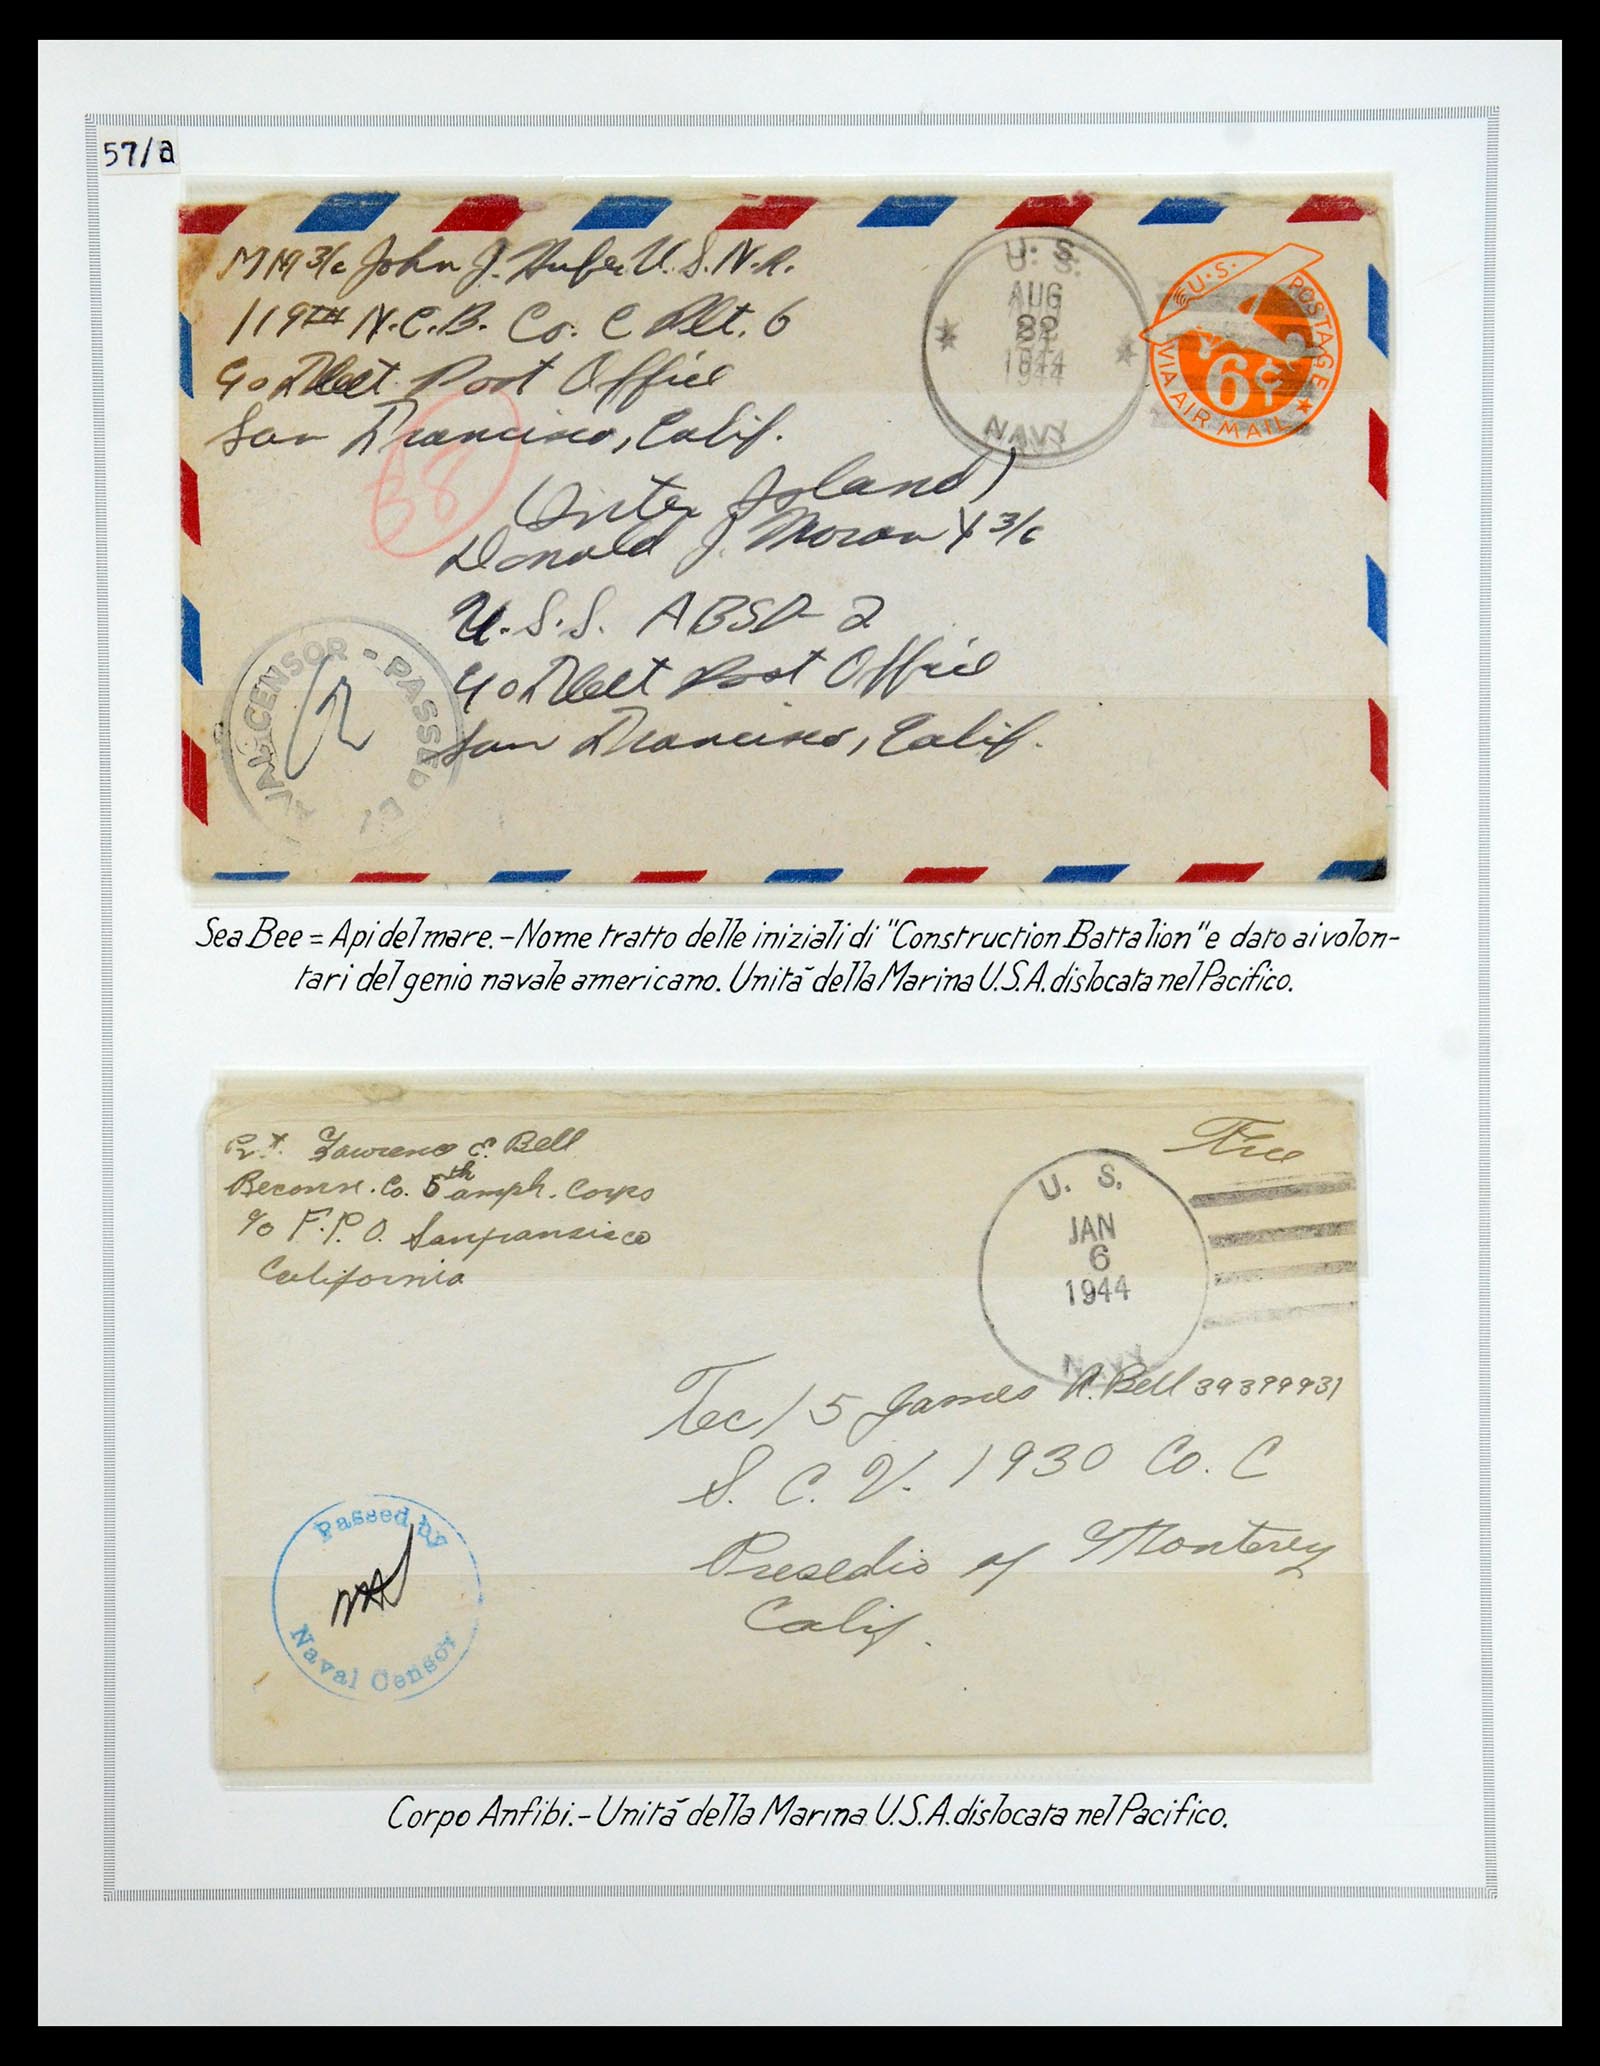 57/a
MM 3/c John J. Hufer U.S.N.R.
119TH N.C.B. Co. C Plt. 6
c/o Fleet Post Office
San Francisco, Calif.
38
U. S.
AUG
1944
NAVY
U.S. POSTAGE
6¢
VIA AIR MAIL
(Inter Island)
Donald J. Moran Y 3/c
U.S.S. ABSD-2
c/o Fleet Post Office
San Francisco, Calif.
NAVAL CENSOR - PASSED BY
Sea Bee = Api del mare. - Nome tratto delle iniziali di "Construction Battalion" e dato ai volon-
tari del genio navale americano. Unità della Marina U.S.A. dislocata nel Pacifico.
Pvt. Lawrence E. Bell
Reconn. Co. 5th amph. Corps
c/o F.P.O. Sanfransisco
California
Free
U. S.
JAN
6
1944
NAVY
Tec/5 James A. Bell 39399931
S. C. U. 1930 Co. C
Presedio of Monterey
Calif.
Passed by
Naval Censor
Corpo Anfibi. - Unità della Marina U.S.A. dislocata nel Pacifico.